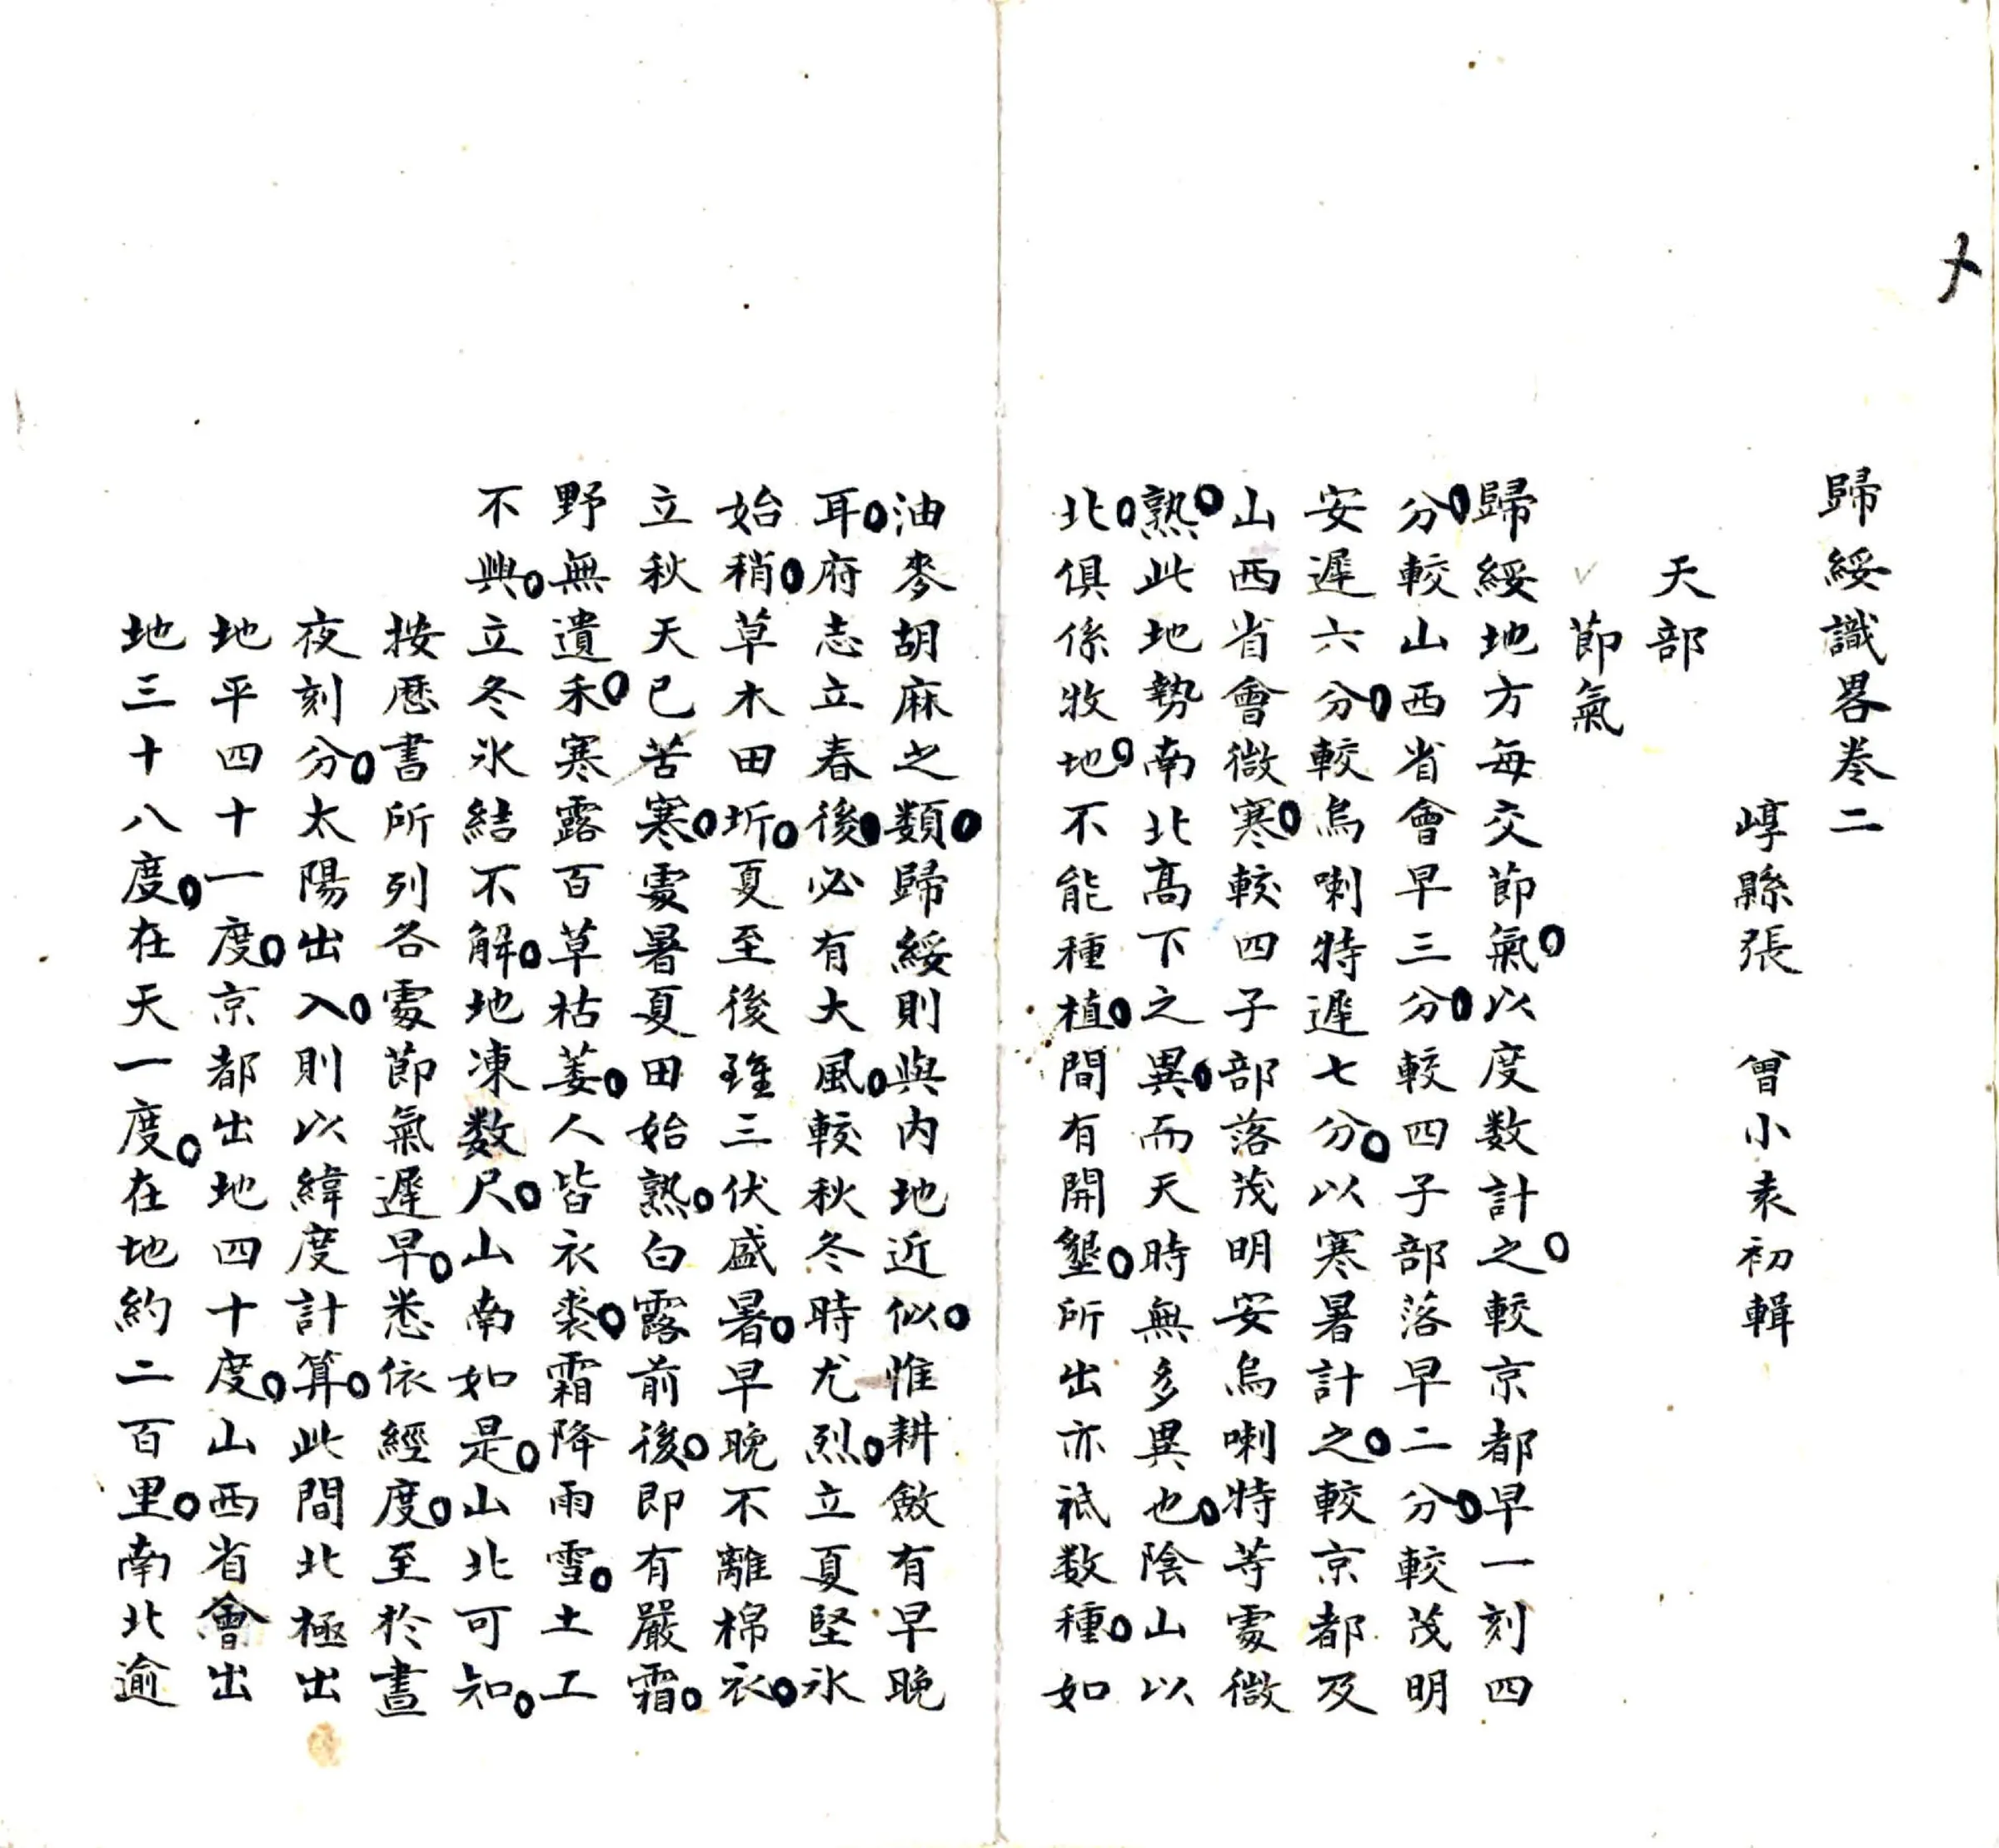 歸綏識畧卷二
崞縣張 曾小袁初輯
天部
節氣
歸綏地方每交節氣。以度数計之。較京都早一刻四
分。較山西省會早三分。較四子部落早二分。較茂明
安遲六分。較烏喇特遲七分。以寒暑計之。較京都及
山西省會微寒。較四子部落茂明安烏喇特等處微
熟。此地勢南北高下之異。而天時無多異也。陰山以
北。俱係牧地。不能種植。間有開墾。所出亦祗数種。如
油麥胡麻之類。歸綏則與内地近似。惟耕斂有早晚
耳。府志立春後。必有大風。較秋冬時尤烈。立夏堅氷
始稍。草木田圻。夏至後雖三伏盛暑。早晚不離棉衣。
立秋天已苦寒。處暑夏田始熟。白露前後。即有嚴霜。
野無遺禾。寒露百草枯萎。人皆衣裘。霜降雨雪。土工
不興。立冬氷結不解。地凍数尺。山南如是。山北可知。
按歴書所列各處節氣遲早。悉依經度。至於晝
夜刻分。太陽出入。則以緯度計算。此間北極出
地平四十一度。京都出地四十度。山西省會出
地三十八度。在天一度。在地約二百里。南北逾